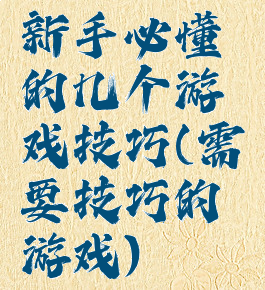 新手必懂
的九个游
戏技巧(需
要技巧的
游戏)